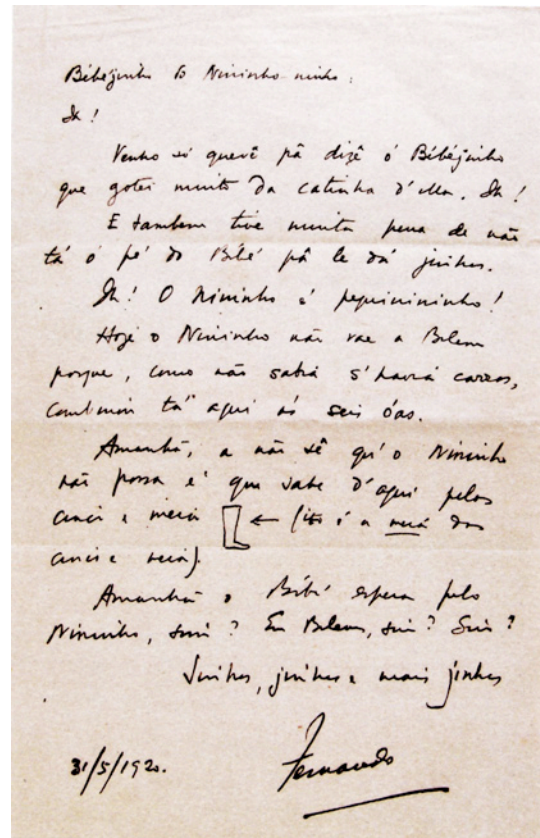 Bébézinho do Nininho-ninho:
Oh!
Venho só quevê pâ dizê ó Bébézinho
que gotei muito da catinha d'ella. Oh!
E tambem tive munta pena de não
tá ó pé do Bébé pâ le dá jinhos.
Oh! O Nininho é pequinininho!
Hoje o Nininho não vae a Belem
porque, como não sabia s'havia carros,
combinei tá aqui ás seis óas.
Amanhã, a não sê qu'o Nininho
não possa é que sahe d'aqui pelas
cinco e meia ← (isto é a meia das
cinco e meia).
Amanhã o Bébé espera pelo
Nininho, sim? Em Belem, sim? Sim?
Jinhos, jinhos e mais jinhos
31/5/1920.
Fernando